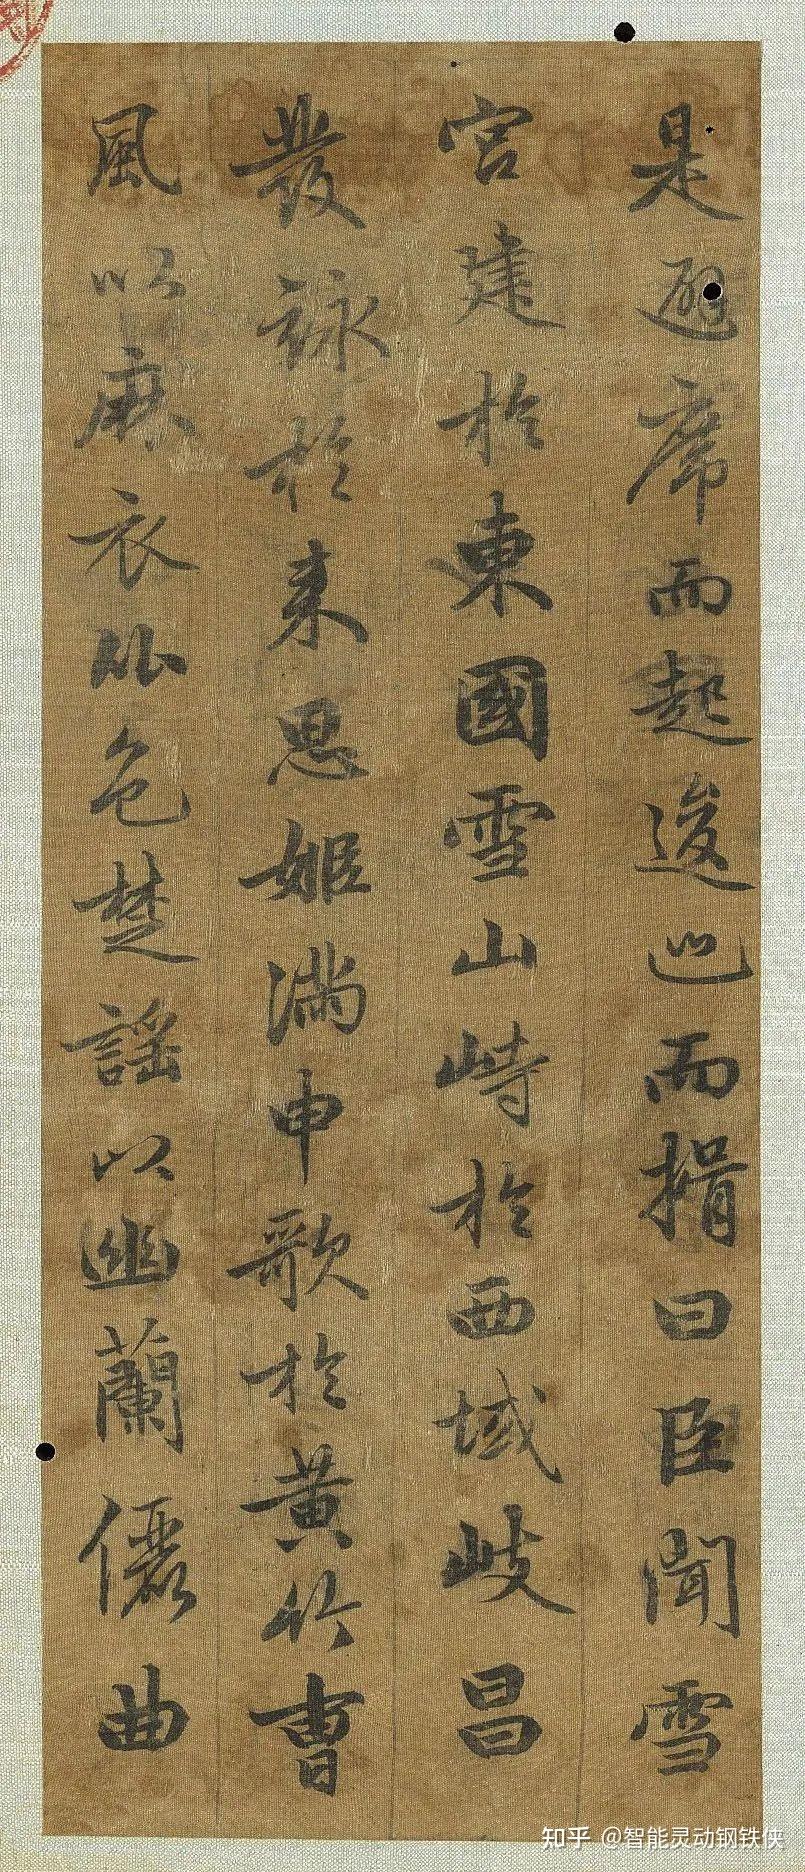 是避席而起逡巡而揖曰臣聞雪
宮建於東國雪山峙於西域岐昌
發詠於来思姬滿申歌於黄竹曹
風以麻衣比色楚謠以幽蘭儷曲
知乎 @智能灵动钢铁侠